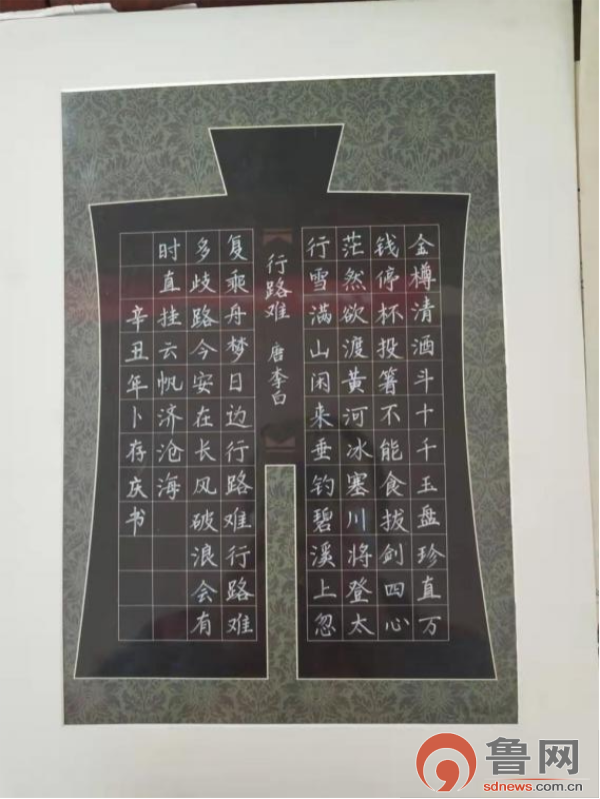 金樽清酒斗十千玉盘珍直万
钱停杯投箸不能食拔剑四心
茫然欲渡黄河冰塞川将登太
行雪满山闲来垂钓碧溪上忽
行路难 唐李白
复乘舟梦日边行路难行路难
多歧路今安在长风破浪会有
时直挂云帆济沧海
辛丑年卜存庆书
鲁网
sdnews.com.cn